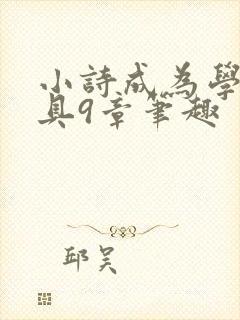 小詩成為學
具9章筆趣
邱吴